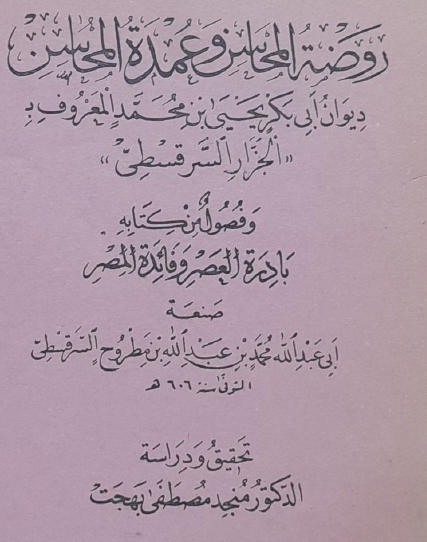 روضة المحاسن وعمدة المحاسن
ديوان أبي بكر يحيى بن محمد المعروف بـ
«الجزار السرقسطي»
وفصول من كتابه
بادرة العصر وفائدة المصر
صنعة
أبي عبد الله محمد بن عبد الله بن مطروح السرقسطي
المتوفى سنة ٦٠٦ هـ
تحقيق ودراسة
الدكتور منجد مصطفى بهجت